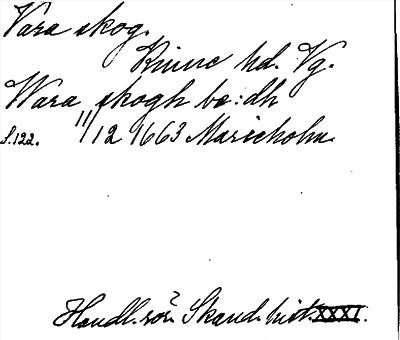 Vara skog.
Kinne hd. Vg.
Wara skogh bo:dh
s.122. 11/12 1663 Marieholm.
Handl. rör? Skand. hist. XXXI.